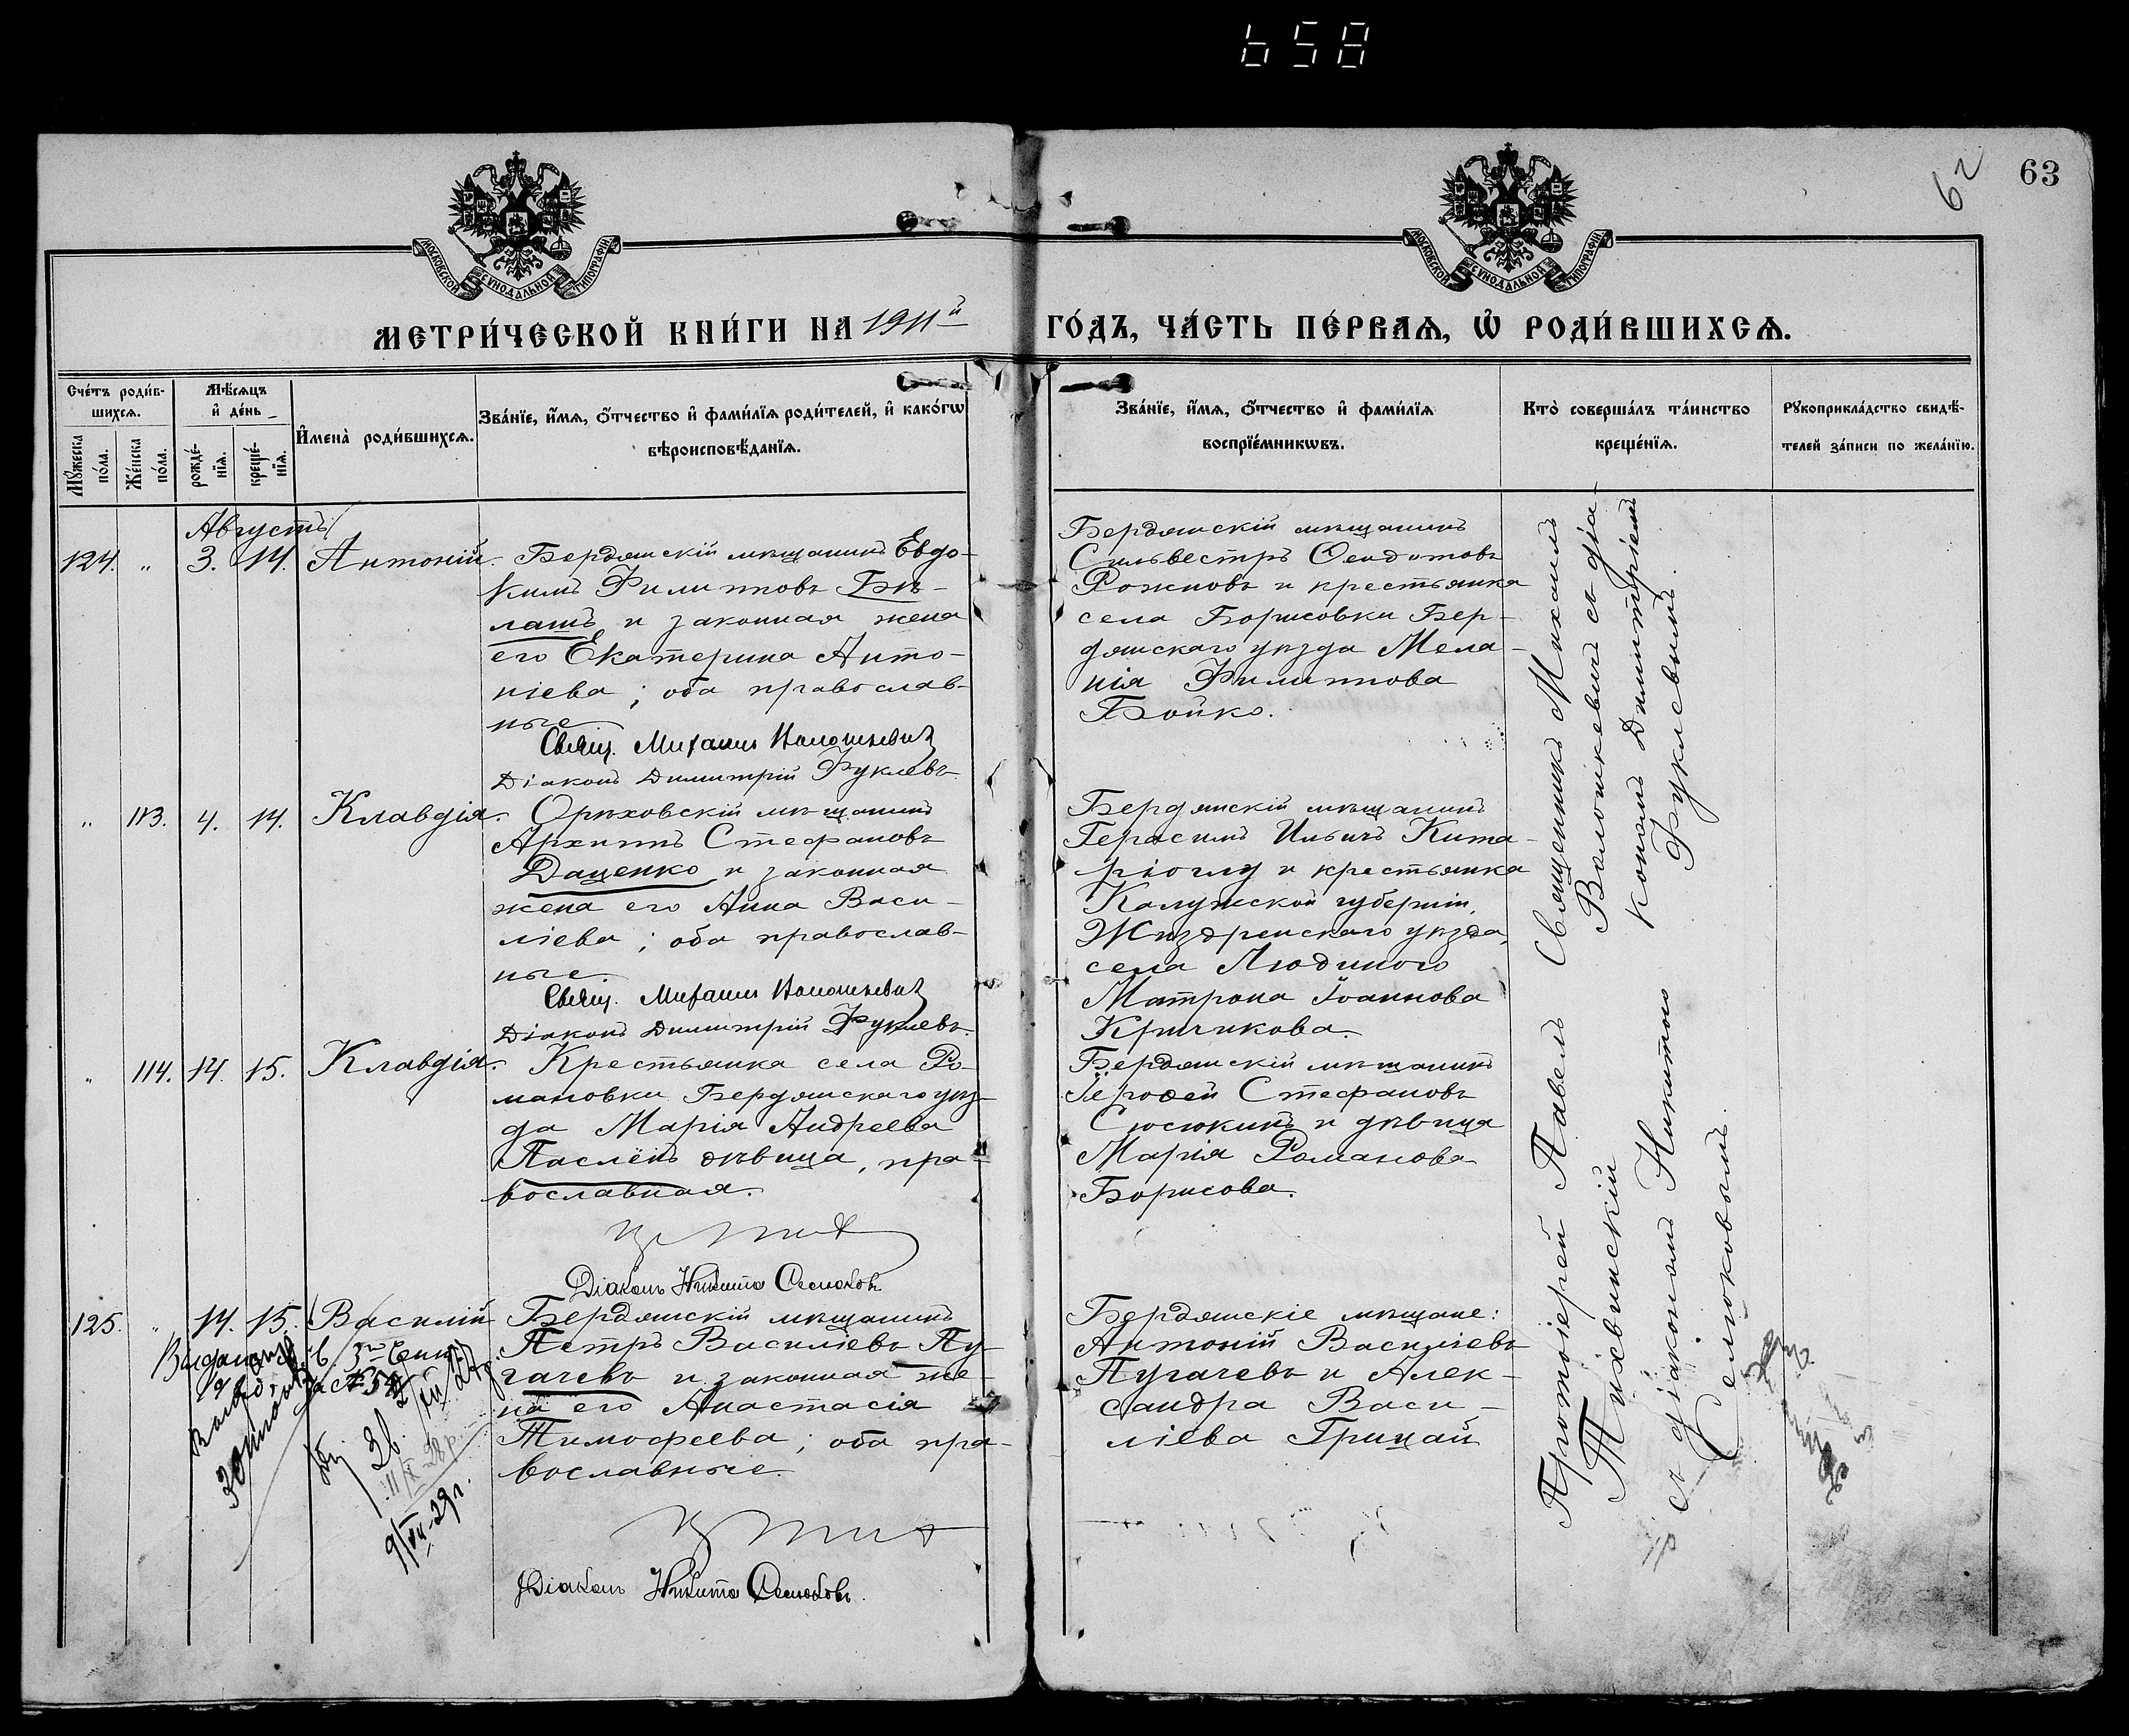 658
62
63
МОСКОВСКОЙ СУНОДАЛЬНОЙ ТИПОГРАФІИ
МОСКОВСКОЙ СУНОДАЛЬНОЙ ТИПОГРАФІИ
МЕТРИ́ЧЕСКОЙ КНИ́ГИ НА 1911й
ГО́ДЪ, ЧА́СТЬ ПЕ́РВАѦ, Ѡ҆ РОДИ́ВШИХСѦ.
Сче́тъ роди́в-
шихсѧ.
Мꙋ́жеска
по́ла.
Же́нска
по́ла.
Мѣ́сѧцъ
и҆ де́нь
рожде́-
нїѧ.
креще́-
нїѧ.
И҆мена̀ роди́вшихсѧ.
Зва́нїе, и҆́мѧ, ѻ҆́тчество и҆ фами́лїѧ роди́телей, и҆ како́гѡ
вѣроисповѣ́данїѧ.
Зва́нїе, и҆́мѧ, ѻ҆́тчество и҆ фами́лїѧ
воспрїе́мникѡвъ.
Кто̀ соверша́лъ та́инство
креще́нїѧ.
Рꙋкоприкла́дство свидѣ́-
телей за́писи по жела́нїю.
Августъ
124. " 3. 14. Антоній.
Бердянскій мѣщанинъ Евдо-
кимъ Филипповъ Бѣ-
лашъ и законная жена
его Екатерина Анто-
ніева; оба православ-
ные
Свящ. Михаилъ Волошкевичъ
Діаконъ Димитрій Фуклевъ
Бердянскій мѣщанинъ
Сильвестръ Ѳеодотовъ
Рожновъ и крестьянка
села Борисовки Бер-
дянскаго уѣзда Мела-
нія Филиппова
Бойко.
Священникъ Михаилъ
Волошкевичъ съ діа-
кономъ Димитріемъ
Фуклевымъ.
" 113. 4. 14. Клавдія.
Орѣховскій мѣщанинъ
Архиппъ Стефановъ
Даценко и законная
жена его Анна Васи-
ліева; оба православ-
ные.
Свящ. Михаилъ Волошкевичъ
Діаконъ Димитрій Фуклевъ.
Бердянскій мѣщанинъ
Герасимъ Ильичъ Кита-
ріоглу и крестьянка
Калужской губерніи,
Жиздренскаго уѣзда,
села Людиного
Матрона Іоаннова
Кричикова.
" 114. 14. 15. Клавдія.
Крестьянка села Ро-
мановки Бердянскаго уѣз-
да Марія Андреева
Паслёнъ дѣвица, пра-
вославная.
Діаконъ Никита Селюковъ
Бердянскій мѣщанинъ
Іероѳей Стефановъ
Сюсюкинъ и дѣвица
Марія Романова
Борисова.
Протоіерей Павелъ
Тихвинскій
съ діакономъ Никитою
Селюковымъ.
125. " 14. 15. Василій
Бердянскій мѣщанинъ
Петръ Василіевъ Пу-
гачевъ и законная же-
на его Анастасія
Тимофеева; оба пра-
вославные.
Діаконъ Никита Селюковъ.
Бердянскіе мѣщане:
Антоній Василіевъ
Пугачевъ и Алек-
сандра Васи-
ліева Грицай
9/VII-29г.